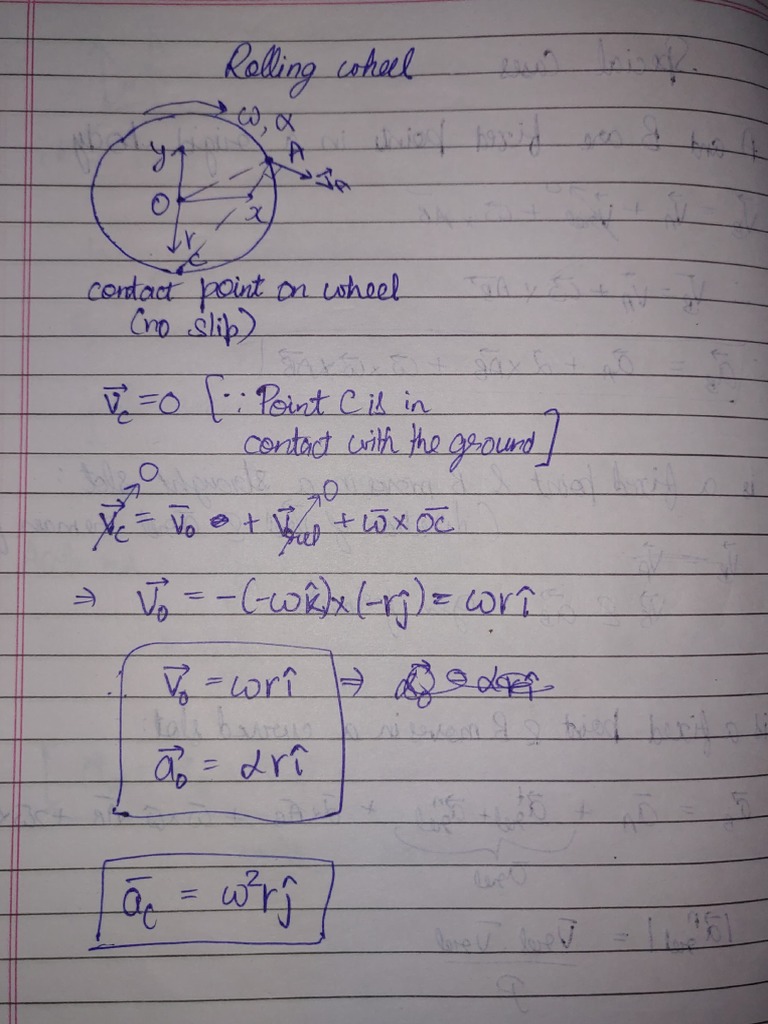 Rolling wheel
ω, α
y
A
V⃗a
O
x
r
C
contact point on wheel
(no slip)
V⃗c = 0 [∵ Point C is in
contact with the ground]
0
0
V⃗c = V̄o + V⃗rel + ω̄ × OC̄
⇒ V⃗o = -(-ωk̂) × (-rĵ) = ωrî
∴ V⃗o = ωrî ⇒
a⃗o = αrî
āc = ω²rĵ